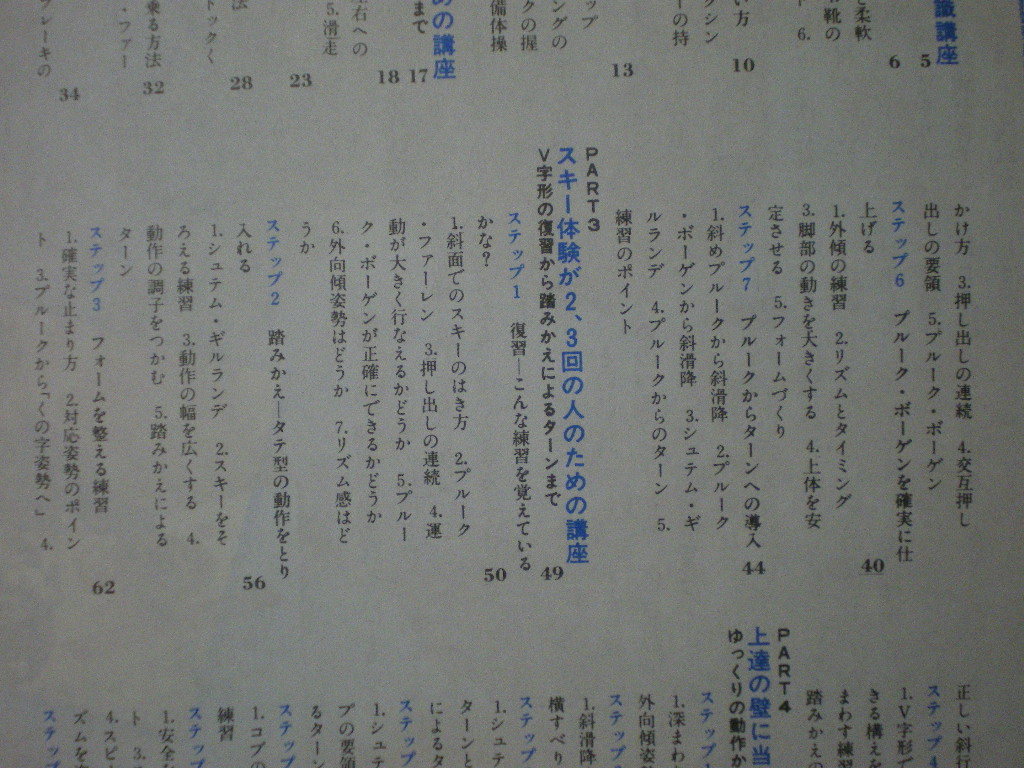 識講座
5
と柔軟
靴の
6.
6
い方
クション
ーの持
10
ップ
ングの
クの握
備体操
13
めの講座
まで
17
左右への
5.滑走
18
23
法
トックく
28
乗る方法
・ファー
32
ブレーキの
34
かけ方 3.押し出しの連続 4.交互押し
出しの要領 5.プルーク・ボーゲン
ステップ6 プルーク・ボーゲンを確実に仕
上げる
40
1.外傾の練習 2.リズムとタイミング
3.脚部の動きを大きくする 4.上体を安
定させる 5.フォームづくり
ステップ7 プルークからターンへの導入
44
1.斜めプルークから斜滑降 2.プルーク
・ボーゲンから斜滑降 3.シュテム・ギ
ルランデ 4.プルークからのターン 5.
練習のポイント
PART3
スキー体験が2、3回の人のための講座
V字形の復習から踏みかえによるターンまで
49
ステップ1 復習―こんな練習を覚えている
かな?
50
1.斜面でのスキーのはき方 2.プルーク
・ファーレン 3.押し出しの連続 4.運
動が大きく行なえるかどうか 5.プルー
ク・ボーゲンが正確にできるかどうか
6.外向傾姿勢はどうか 7.リズム感はど
うか
ステップ2 踏みかえ―タテ型の動作をとり
入れる
56
1.シュテム・ギルランデ 2.スキーをそ
ろえる練習 3.動作の幅を広くする 4.
動作の調子をつかむ 5.踏みかえによる
ターン
ステップ3 フォームを整える練習
62
1.確実な止まり方 2.対応姿勢のポイン
ト 3.プルークから「くの字姿勢へ」 4.
正しい斜行
ステップ4
1.V字形で
きる構えを
まわす練習
踏みかえの
PART4
上達の壁に当
ゆっくりの動作か
ステップ1
1.深まわ
外向傾姿勢
ステップ
1.斜滑降
横すべり
ステップ
1.シュテ
ターンと
によるタ
ステップ
1.シュテ
プの要領
るターン
ステップ
1.コブの
練習
ステップ
1.安全な
ト 3.
4.スピー
ズムを
ステップ